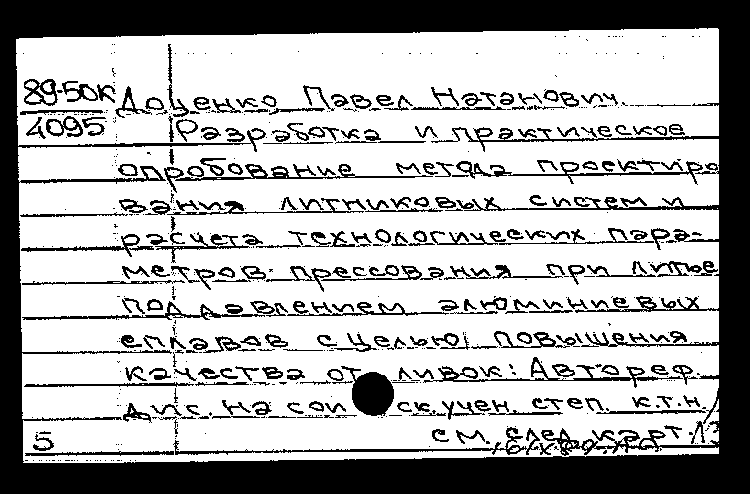 89-50К Доценко Павел Натанович.
4095 Разработка и практическое
опробование метода проектиро
вания литниковых систем и
расчета технологических пара-
метров прессования при литье
под давлением алюминиевых
сплавов с целью повышения
качества отливок: Автореф.
дис. на соиск. учен. степ. к.т.н.
5 см. след. карт.